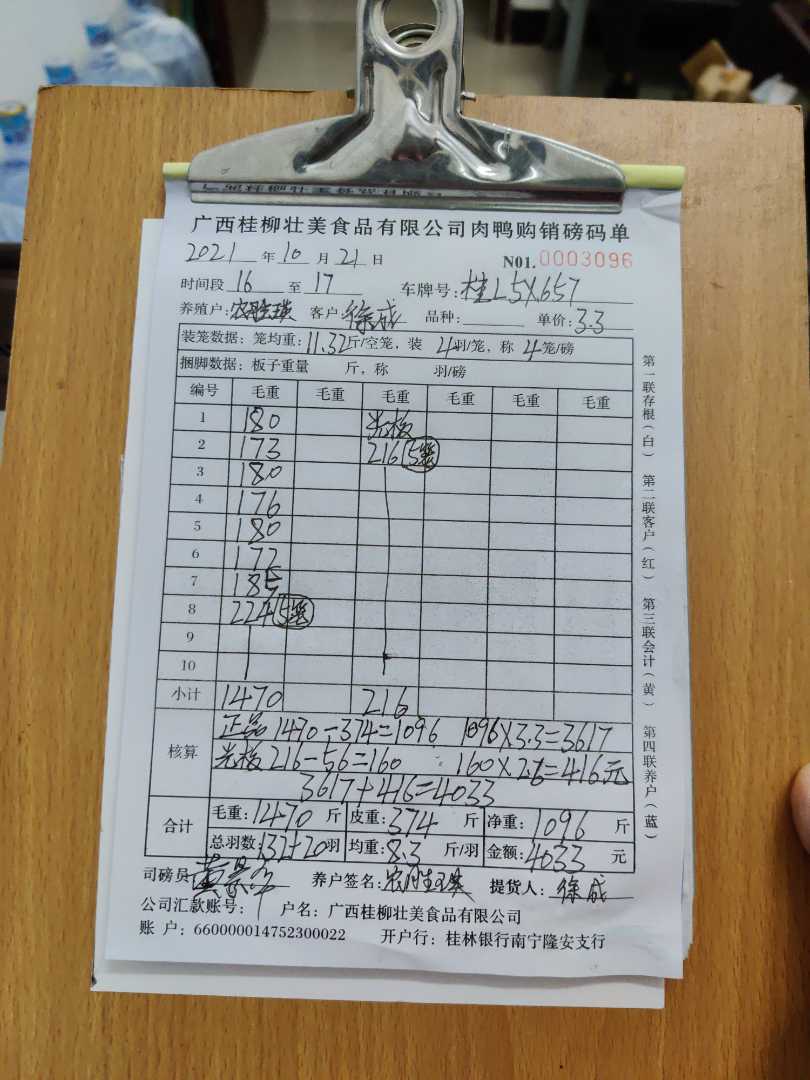 广西桂柳壮美食品有限公司肉鸭购销磅码单
2021 年 10 月 21 日 N01.0003096
时间段 16 至 17 车牌号: 桂L5X657
养殖户: 客户 徐成 品种: 单价: 3.3
装笼数据: 笼均重: 11.32 斤/空笼, 装 4 羽/笼, 称 4 笼/磅
捆脚数据: 板子重量 斤, 称 羽/磅
编号 毛重 毛重 毛重 毛重 毛重 毛重
1 180
2 173 216 5笼
3 180
4 176
5 180
6 172
7 185
8 224 5笼
9
10
小计 1470 216
核算 正品 1470-374=1096 1096×3.3=3617
216-56=160 160×2.6=416元
3617+416=4033
合计 毛重: 1470 斤 皮重: 374 斤 净重: 1096 斤
总羽数: 132+20 羽 均重: 8.3 斤/羽 金额: 4033 元
司磅员 养户签名: 提货人: 徐成
公司汇款账号: 户名: 广西桂柳壮美食品有限公司
账 户: 660000014752300022 开户行: 桂林银行南宁隆安支行
第一联存根(白) 第二联客户(红) 第三联会计(黄) 第四联养户(蓝)